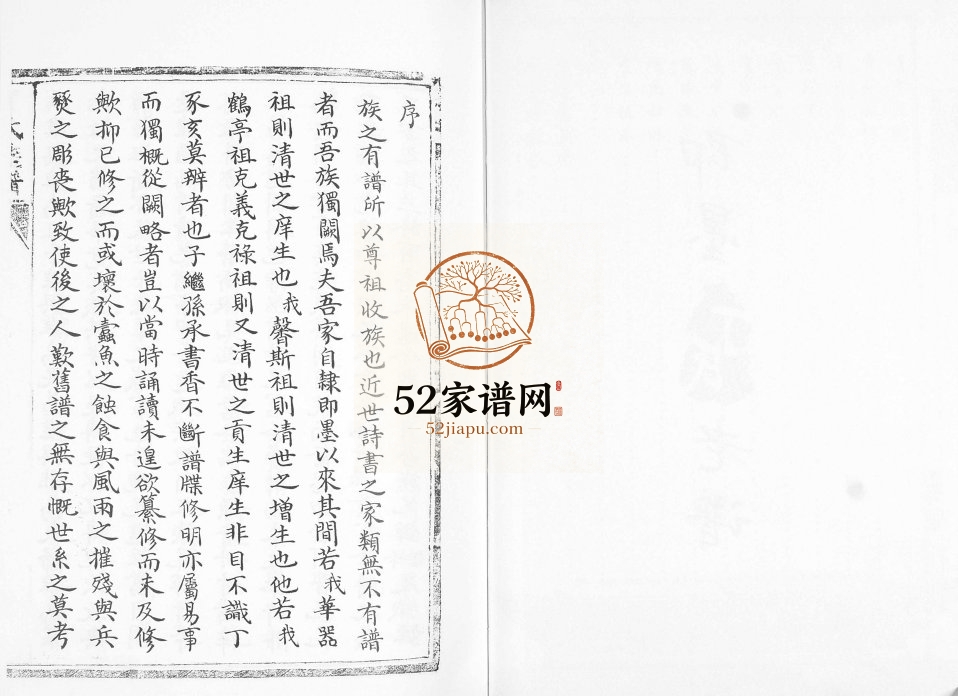 序
族之有譜所以尊祖收族也近世詩書之家類無不有譜
者而吾族獨闕焉夫吾家自隸即墨以來其間若我華器
祖則清世之庠生也我馨斯祖則清世之增生也他若我
鶴亭祖克義克祿祖則又清世之貢生庠生非目不識丁
豕亥莫辨者也子繼孫承書香不斷譜牒修明亦屬易事
而獨概從闕略者豈以當時誦讀未遑欲纂修而未及修
歟抑已修之而或壞於蠹魚之蝕食與風雨之摧殘與兵
燹之彫喪歟致使後之人歎舊譜之無存慨世系之莫考
52家谱网
52jiapu.com